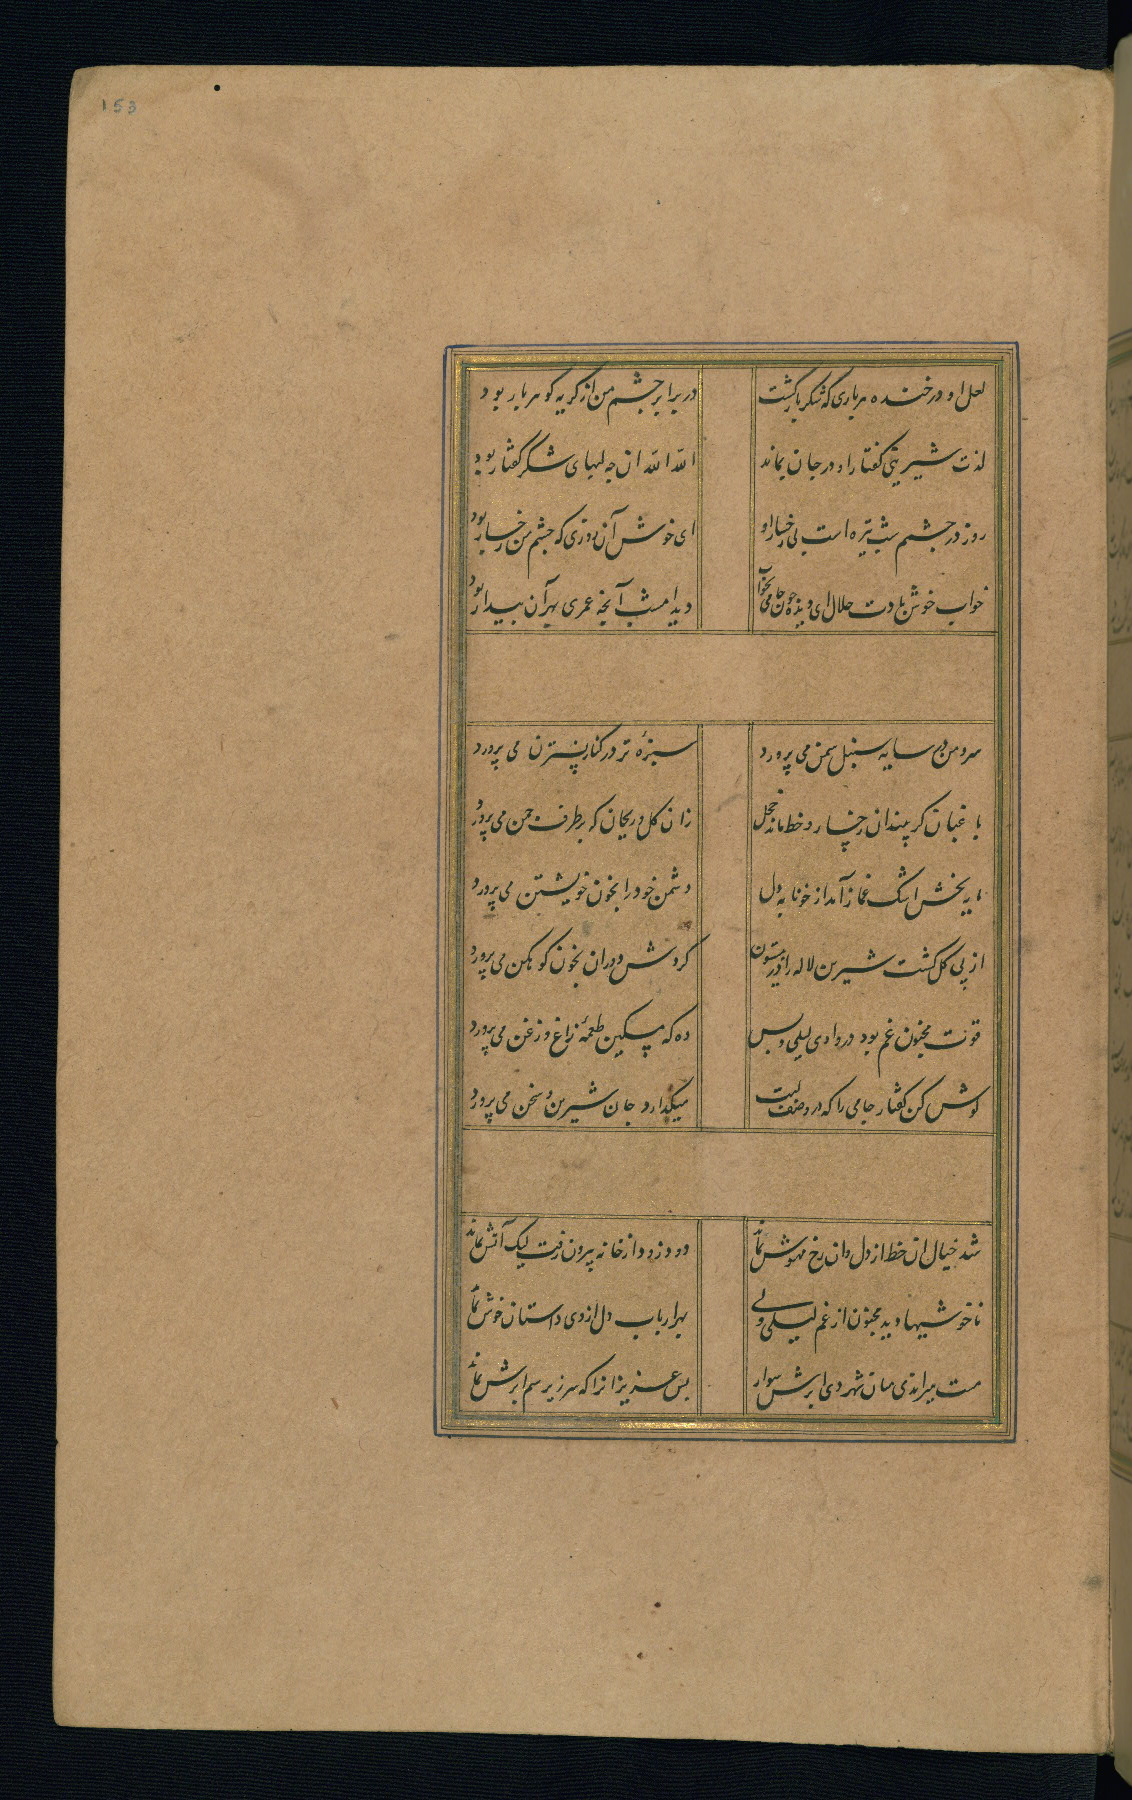 153
لعل او در خنده هر باری که شکر بار گشت در برابر چشم من از گریه گوهر بار بود
لذت شیرینی گفتار او در جان بماند الله الله ان چه لبهای شکر گفتار بود
روز در چشمم شب تیره است بی رخسار او ای خوش آن روزی که چشم من رخسار بود
خواب خوش بادت حلال ای دیده چون جامی بخواب دید امشب آنچه عمری بهر آن بیدار بود
سرو من در سایه سنبل سمن می پرورد سبزه تر در کنار نسترن می پرورد
باغبان گر بیند ان رخسار و خط ماند خجل زان گل و ریحان که بر طرف چمن می پرورد
مایه بخش اشک غماز آمد از خونابه دل دشمن خود را بخون خویشتن می پرورد
از پی گل گشت شیرین لاله را در بیستون گردش دوران بخون کوهکن می پرورد
قوت مجنون غم بود در وادی لیلی و بس ده که مسکین طعمه زاغ و زغن می پرورد
گوش کن گفتار جامی را که در وصف لبت میگدازد جان شیرین و سخن می پرورد
شد خیال ان خط از دل وان رخ مهوش بماند دود زود از خانه بیرون رفت لیک آتش بماند
ناخوشیها دید مجنون از غم لیلی ولی بهر ارباب دل از وی داستان خوش بماند
مست میراندی میان شهر دی ابرش سوار بس عزیزانرا که سر زیر سم ابرش بماند